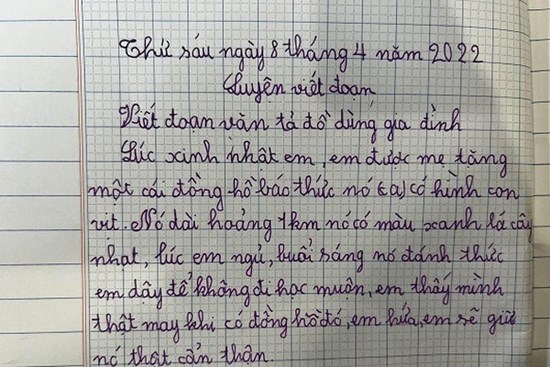 Thứ sáu ngày 8 tháng 4 năm 2022
Luyện viết đoạn
Viết đoạn văn tả đồ dùng gia đình
Lúc xinh nhật em, em được mẹ tăng
một cái đồng hồ báo thức nó (ca) có hình con
vit. Nó dài hoảng 1km nó có màu xanh lá cây
nhạt, lúc em ngủ, buổi sáng nó đánh thức
em dậy để không đi học muộn, em thấy mình
thật may khi có đồng hồ đó, em hứa, em sẽ giữ
nó thât cẩn thận.